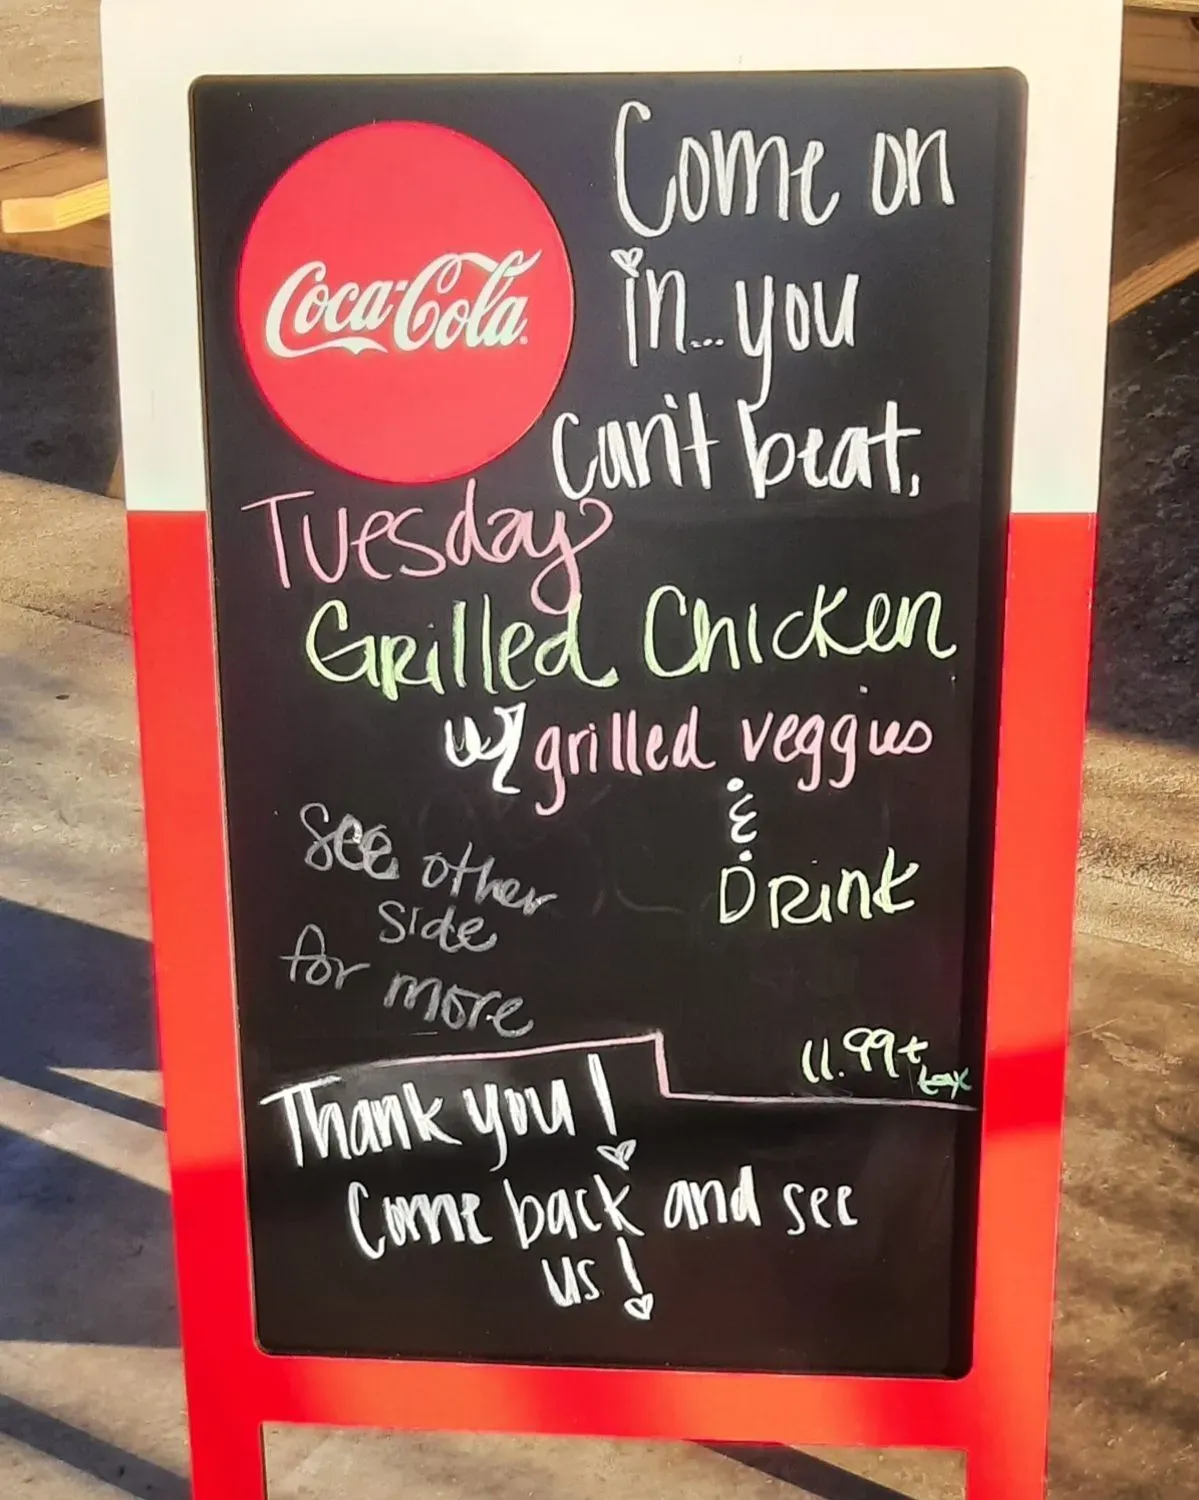 Coca-Cola
Come on
in...you
can't beat.
Tuesday
Grilled Chicken
w/ grilled veggies
&
Drink
See other
side
for more
11.99 + tax
Thank you!
Come back and see
us!